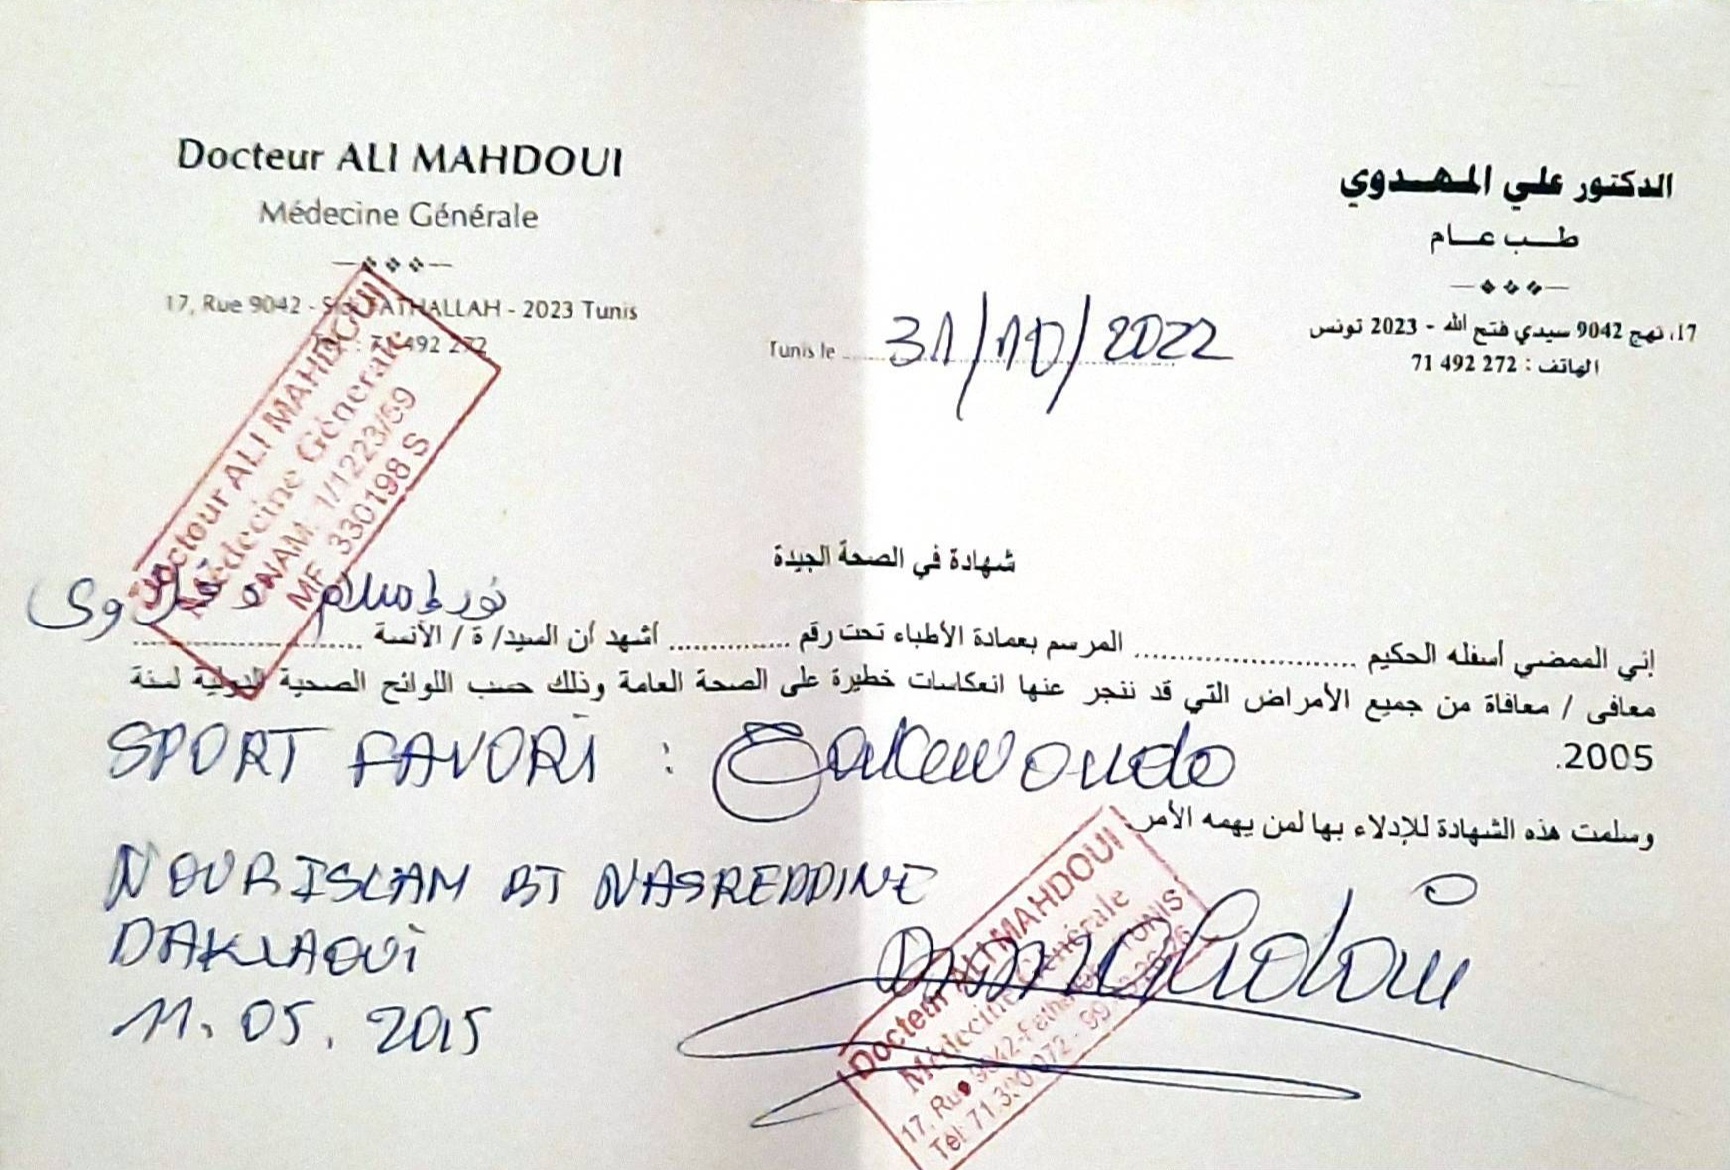 Docteur ALI MAHDOUI
Médecine Générale
17, Rue 9042 - Sidi FATHALLAH - 2023 Tunis
71 492 272
الدكتور علي المهدوي
طب عام
17، نهج 9042 سيدي فتح الله - 2023 تونس
الهاتف : 272 492 71
Tunis le 31/10/2022
Docteur ALI MAHDOUI
Médecine Générale
CNAM. 1/1223/59
MF. 330198 S
شهادة في الصحة الجيدة
إني الممضي أسفله الحكيم ........................ المرسم بعمادة الأطباء تحت رقم .............. أشهد أن السيد/ ة / الأنسة نور إسلام
معافى / معافاة من جميع الأمراض التي قد تنجر عنها انعكاسات خطيرة على الصحة العامة وذلك حسب اللوائح الصحية الدولية لسنة
2005.
SPORT FAVORI : Taekwondo
وسلمت هذه الشهادة للإدلاء بها لمن يهمه الأمر.
NOUR ISLAM BT NASREDDINE
DAKLAOUI
11. 05. 2015
Docteur ALI MAHDOUI
Médecine Générale
17, Rue 9042-Fathallah TUNIS
Tél: 71.390.072 - 99